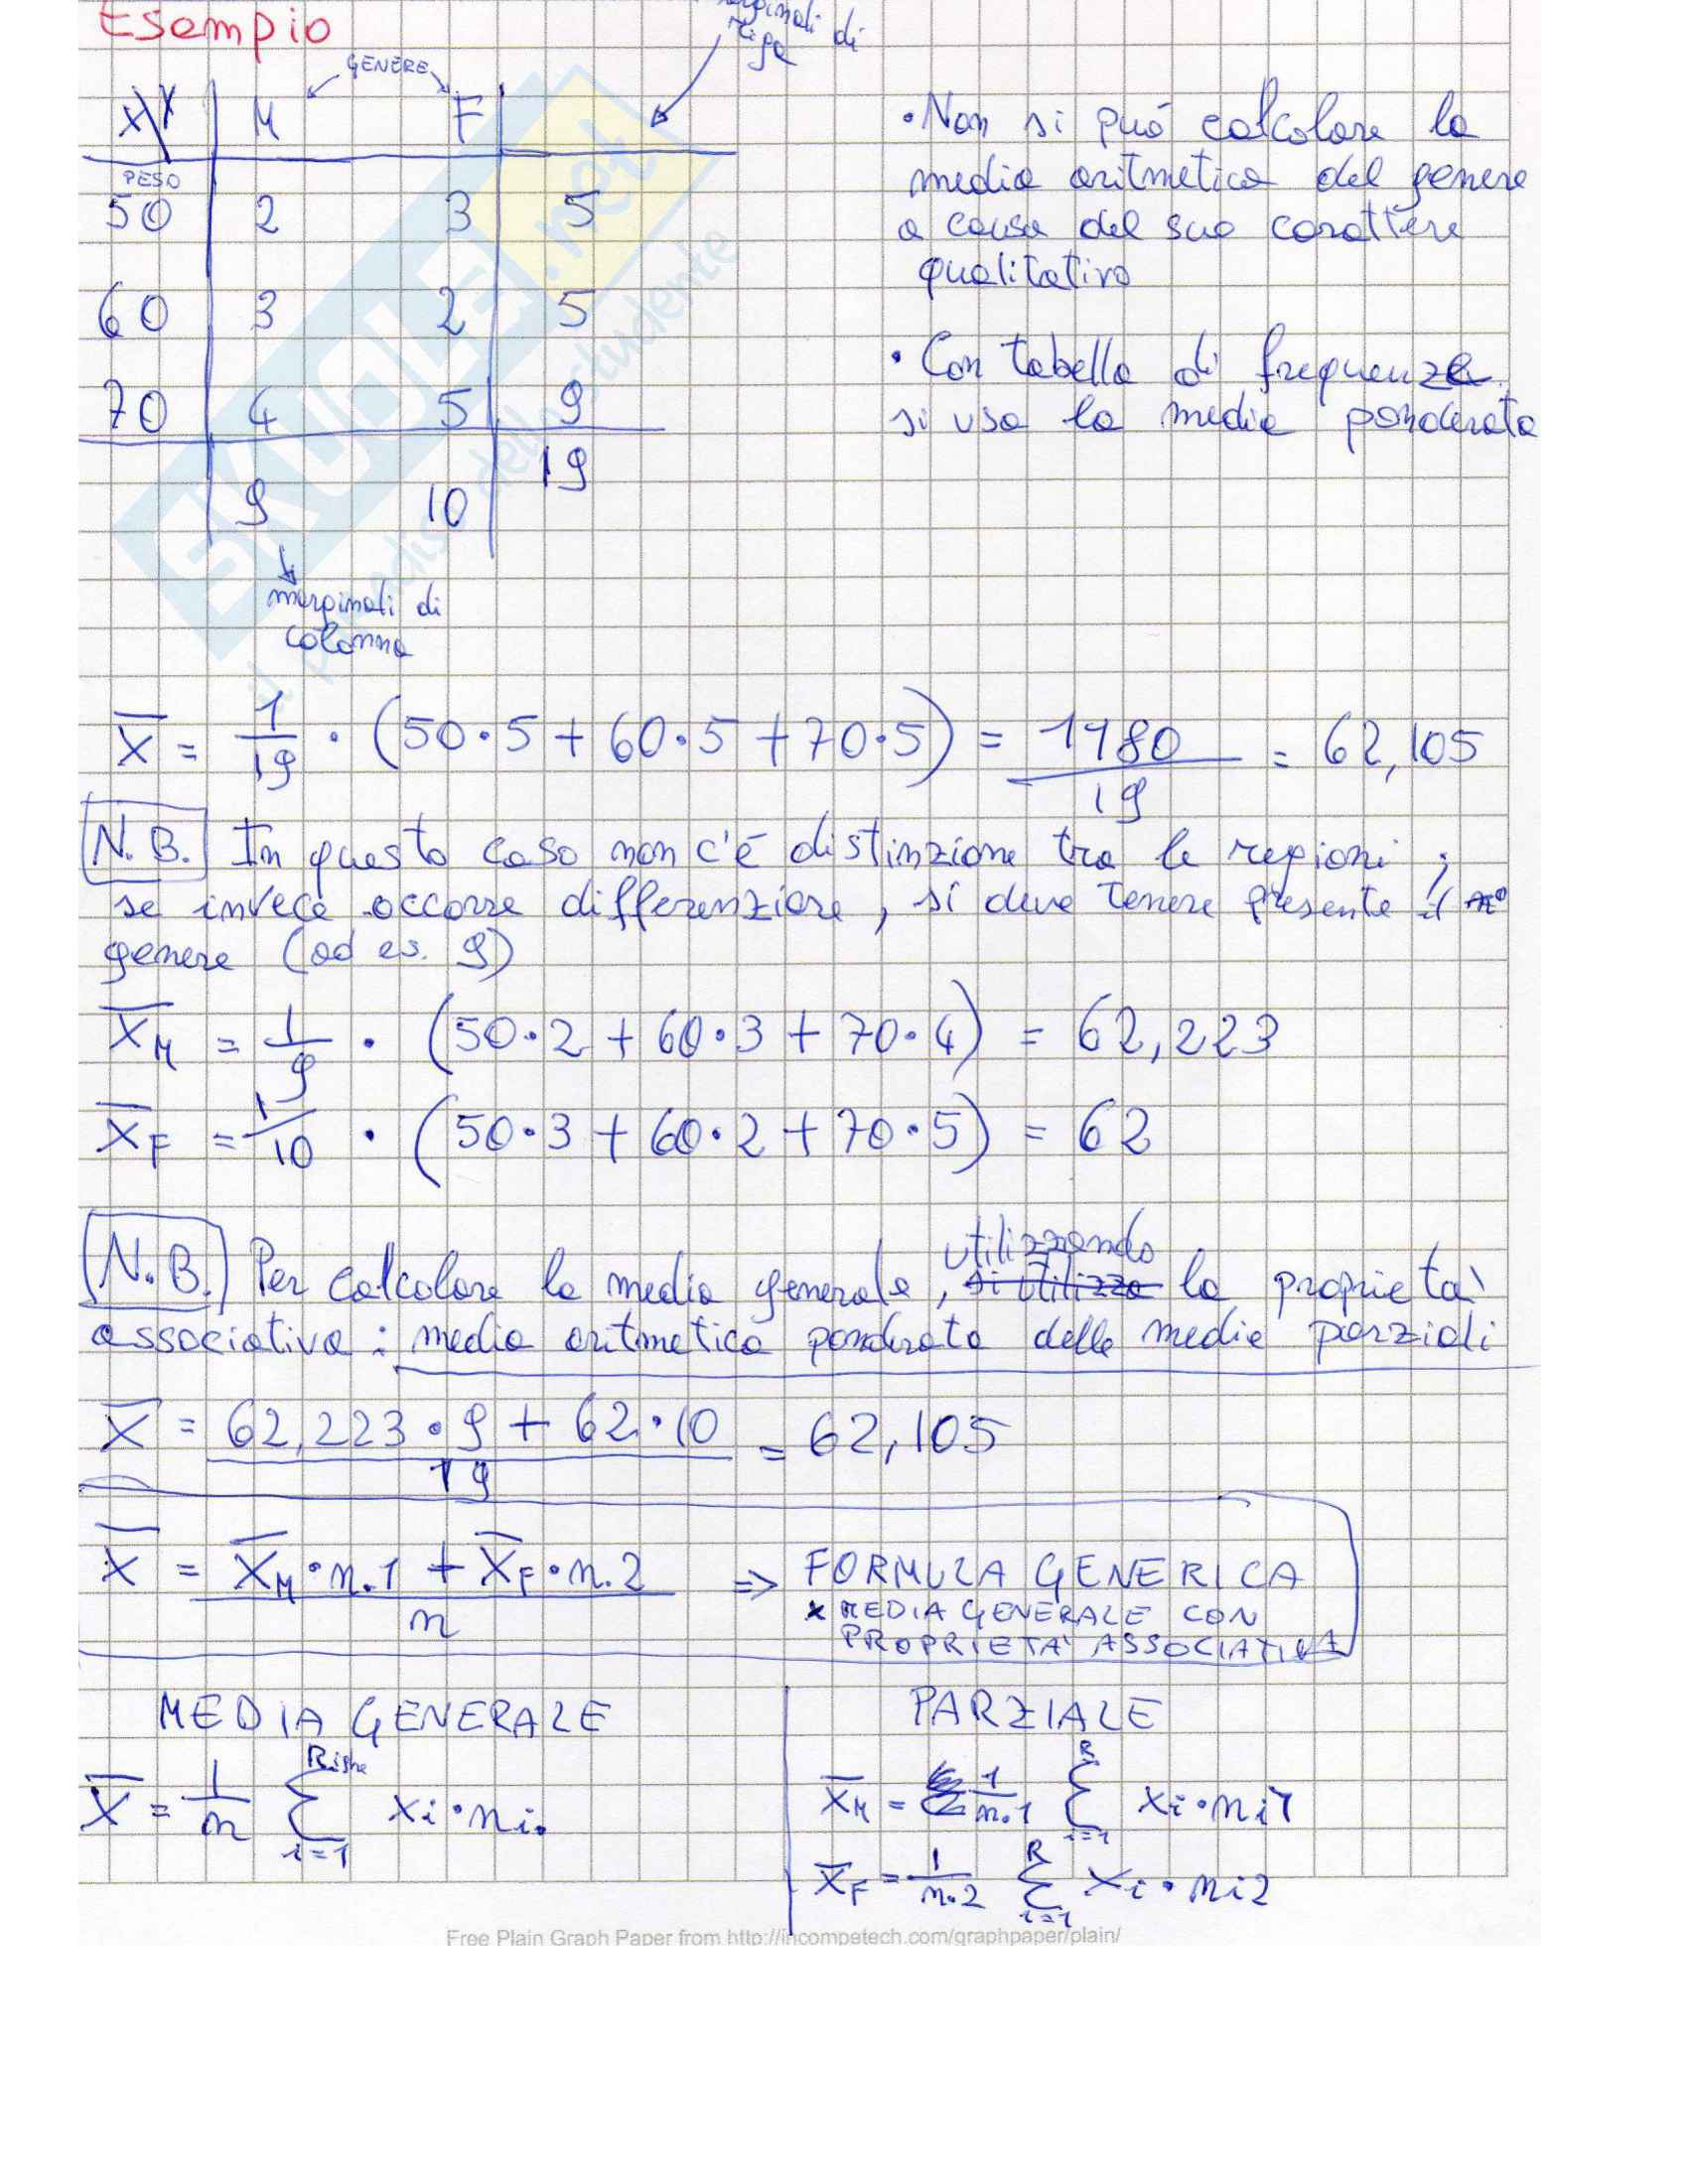 Esempio
marginali di
riga
GENERE
X\Y M F
PESO
50 2 3 5
60 3 2 5
70 4 5 9
9 10 19
marginali di
colonna
• Non si può calcolare la
media aritmetica del genere
a causa del suo carattere
qualitativo
• Con tabella di frequenze
si usa la media ponderata
X̅ = 1/19 · (50·5 + 60·5 + 70·5) = 1180/19 = 62,105
N.B. In questo caso non c'è distinzione tra le regioni;
se invece occorre differenziare, si deve tenere presente il n°
genere (ad es. 9)
X̅M = 1/9 · (50·2 + 60·3 + 70·4) = 62,223
X̅F = 1/10 · (50·3 + 60·2 + 70·5) = 62
N.B. Per calcolare la media generale, utilizzando si utilizza la proprietà
associativa: media aritmetica ponderata delle medie parziali
X̅ = 62,223·9 + 62·10 / 19 = 62,105
X̅ = X̅M·n.1 + X̅F·n.2 / n => FORMULA GENERICA
x MEDIA GENERALE CON
PROPRIETA' ASSOCIATIVA
MEDIA GENERALE
X̅ = 1/n Σ i=1 Righe xi·ni.
PARZIALE
X̅M = 1/n.1 Σ i=1 R xi·ni1
X̅F = 1/n.2 Σ i=1 R xi·ni2
SKUOLA.net
il paradiso dello studente
Free Plain Graph Paper from http://incompetech.com/graphpaper/plain/